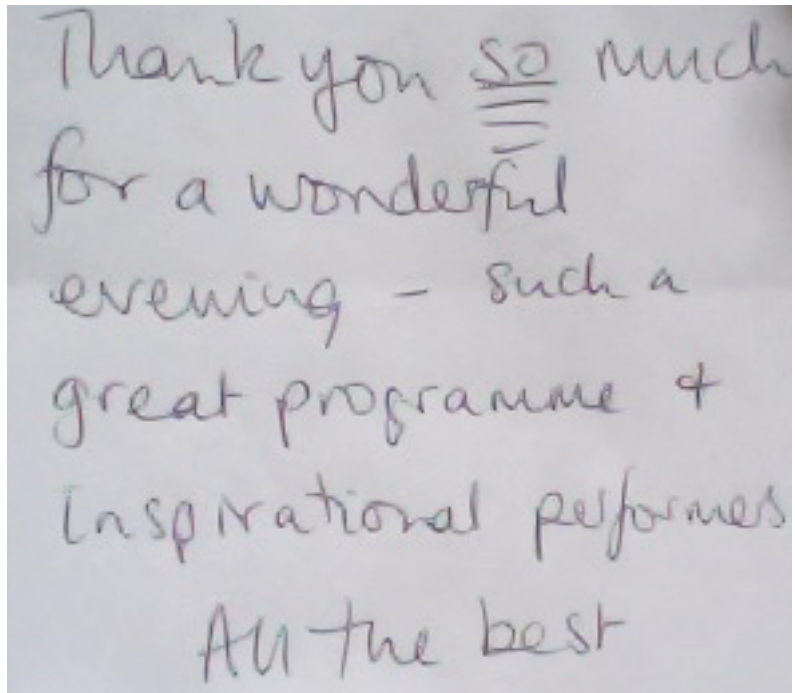 Thank you so much
for a wonderful
evening - such a
great programme &
inspirational performes
All the best